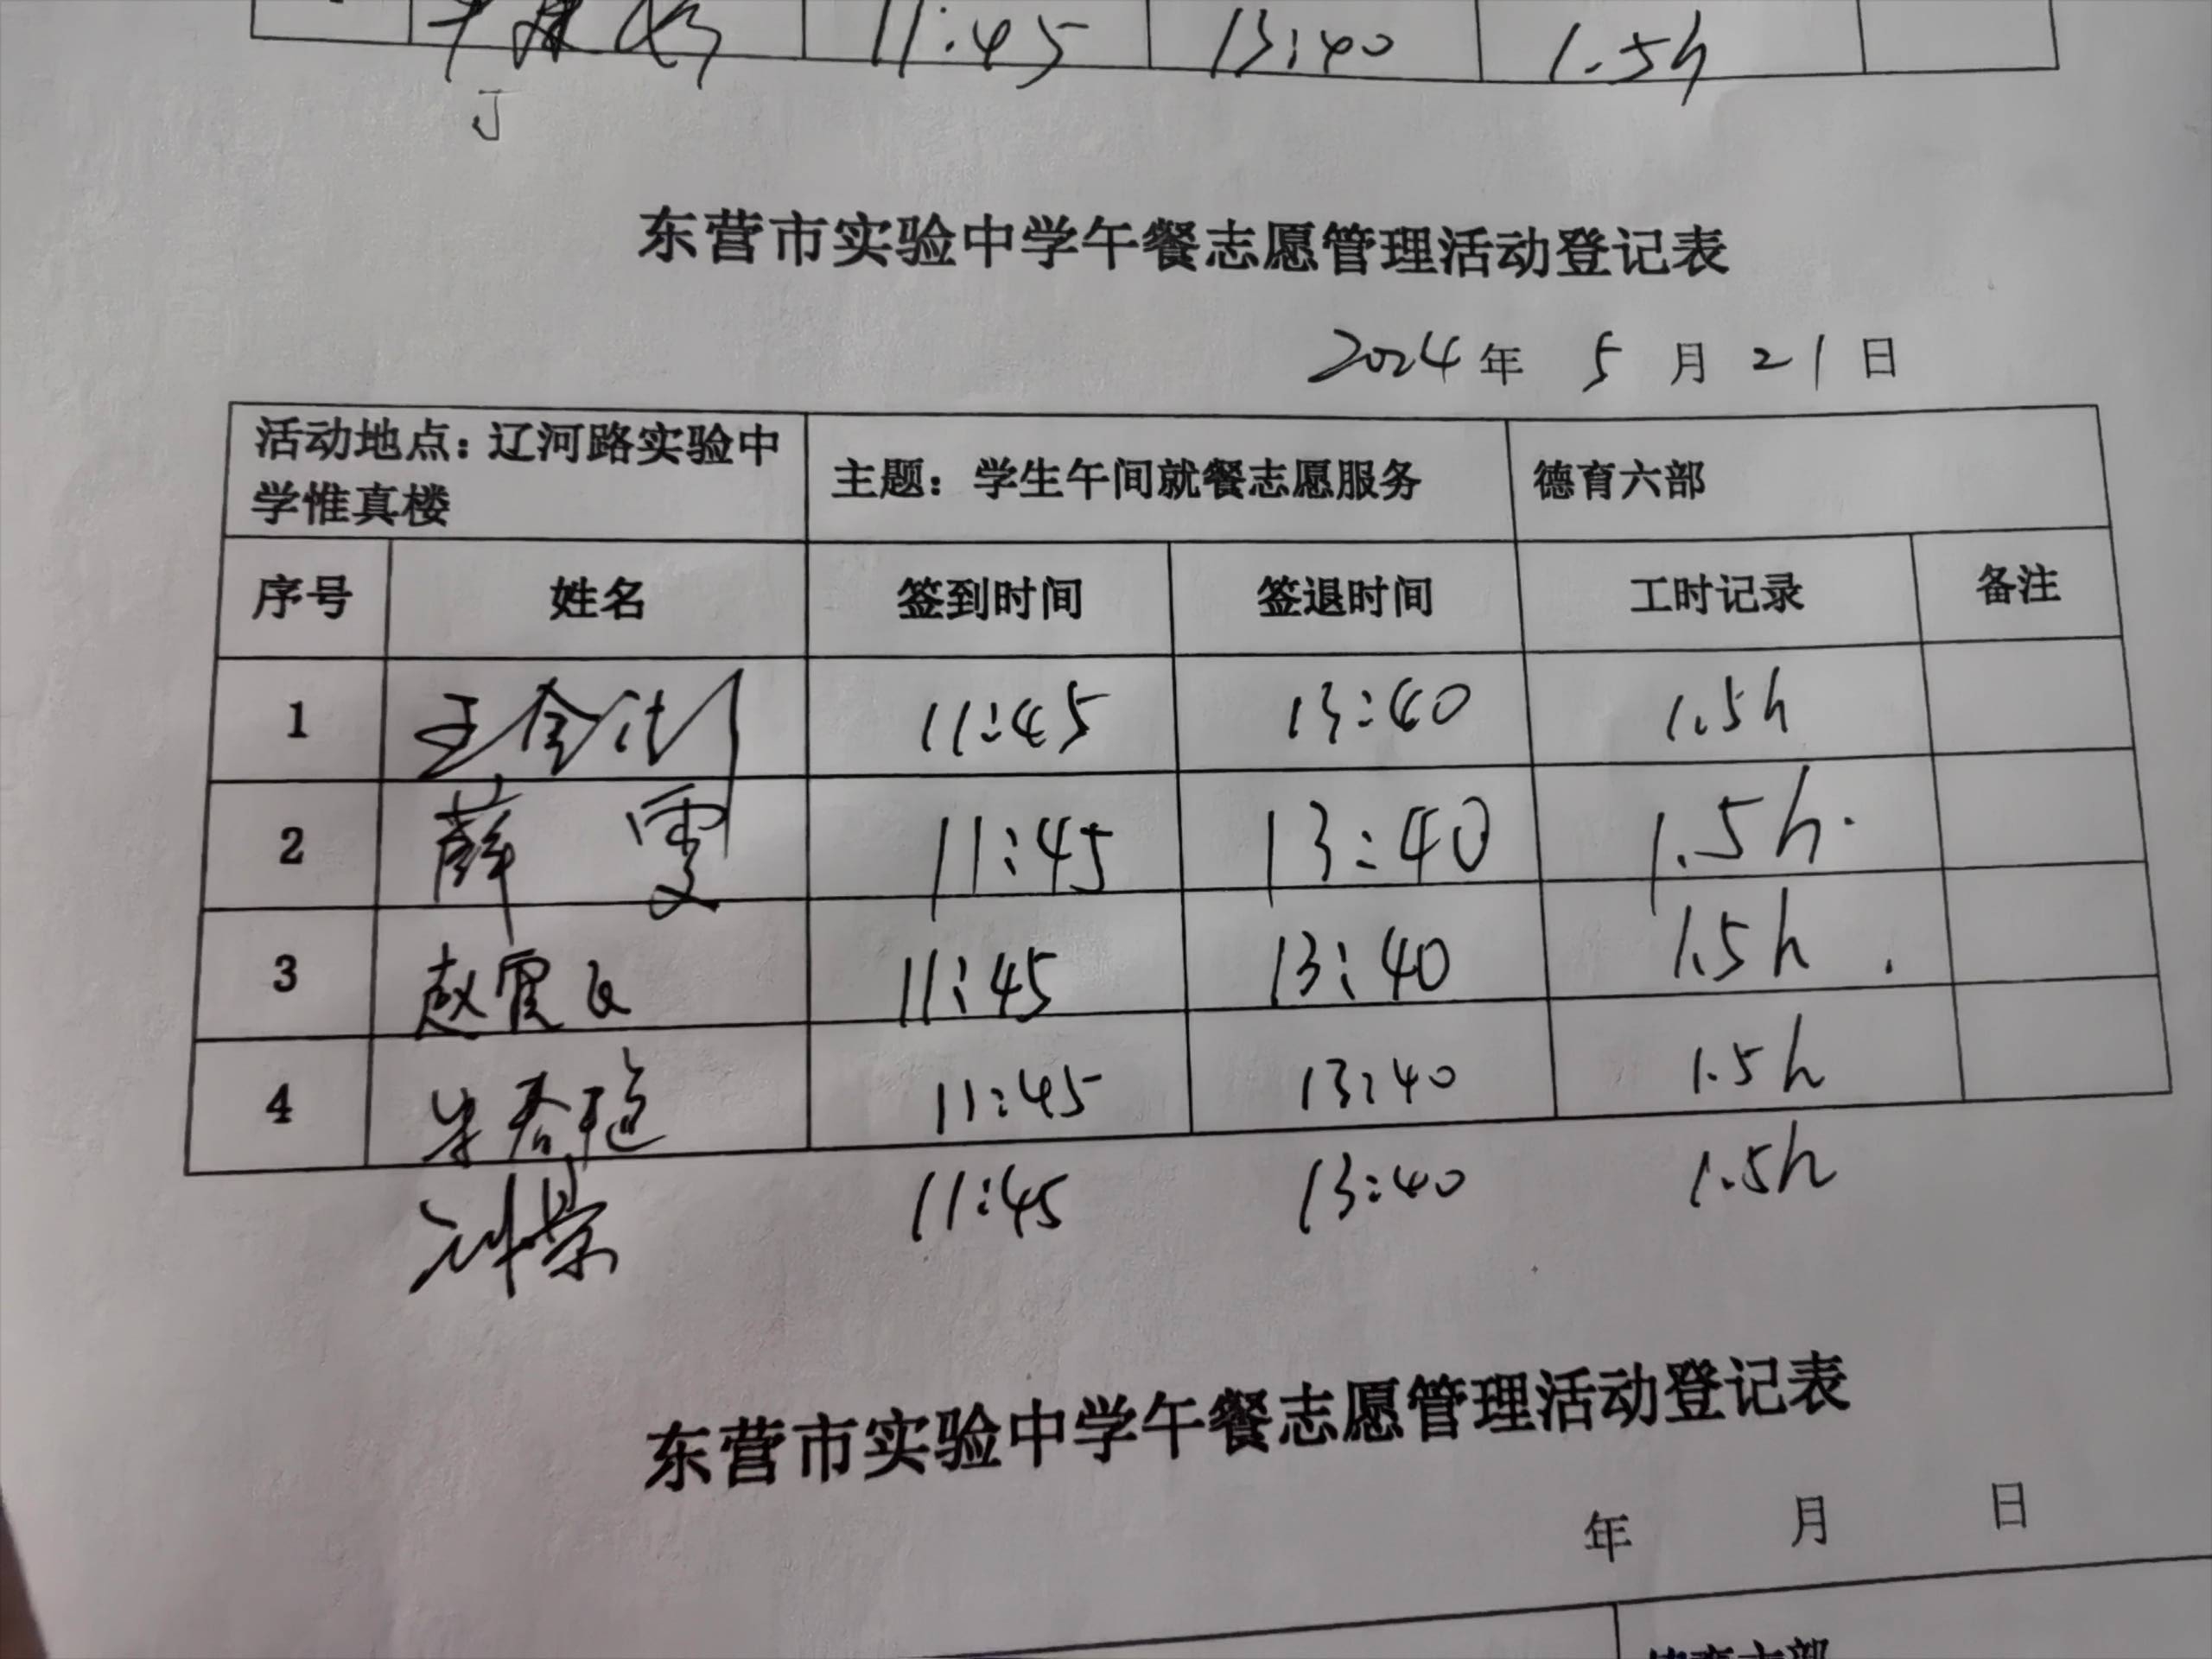 11:45 13:40 1.5h
东营市实验中学午餐志愿管理活动登记表
2024年 5月21日
活动地点：辽河路实验中
学惟真楼
主题：学生午间就餐志愿服务
德育六部
序号 姓名 签到时间 签退时间 工时记录 备注
1 王金 11:45 13:40 1.5h
2 薛雯 11:45 13:40 1.5h.
3 赵霞 11:45 13:40 1.5h
4 11:45 13:40 1.5h
11:45 13:40 1.5h
东营市实验中学午餐志愿管理活动登记表
年 月 日
德育六部